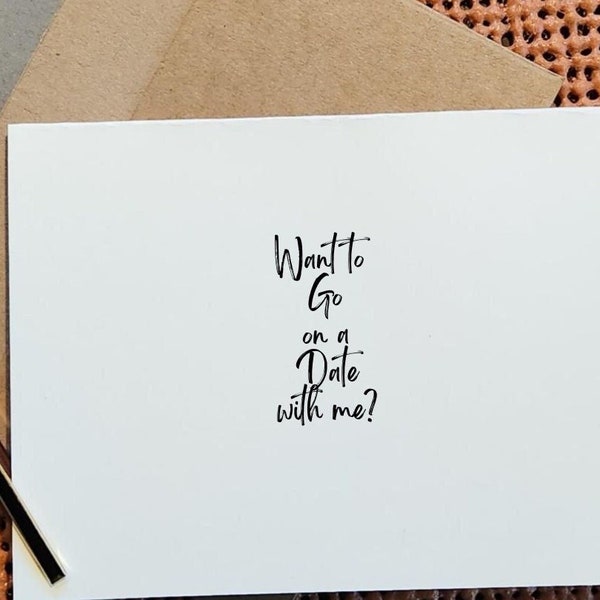 Want to
Go
on a
Date
with me?